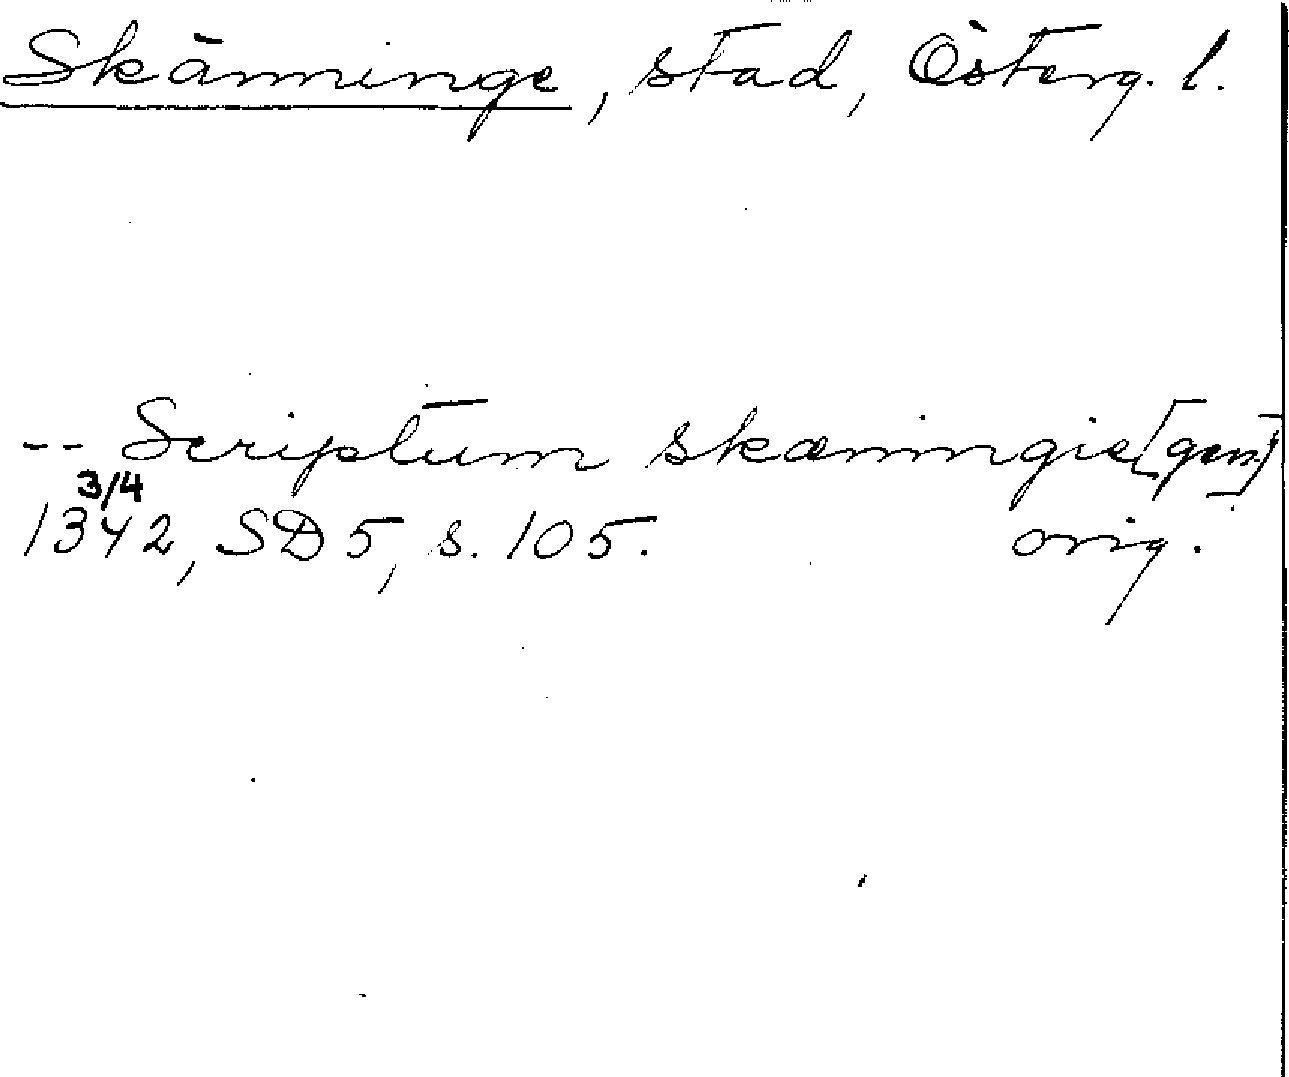 Skänninge, stad, Österg. l.
-- Scriptum skæningie [gen.]
3/4
1342, SD 5, s. 105. orig.